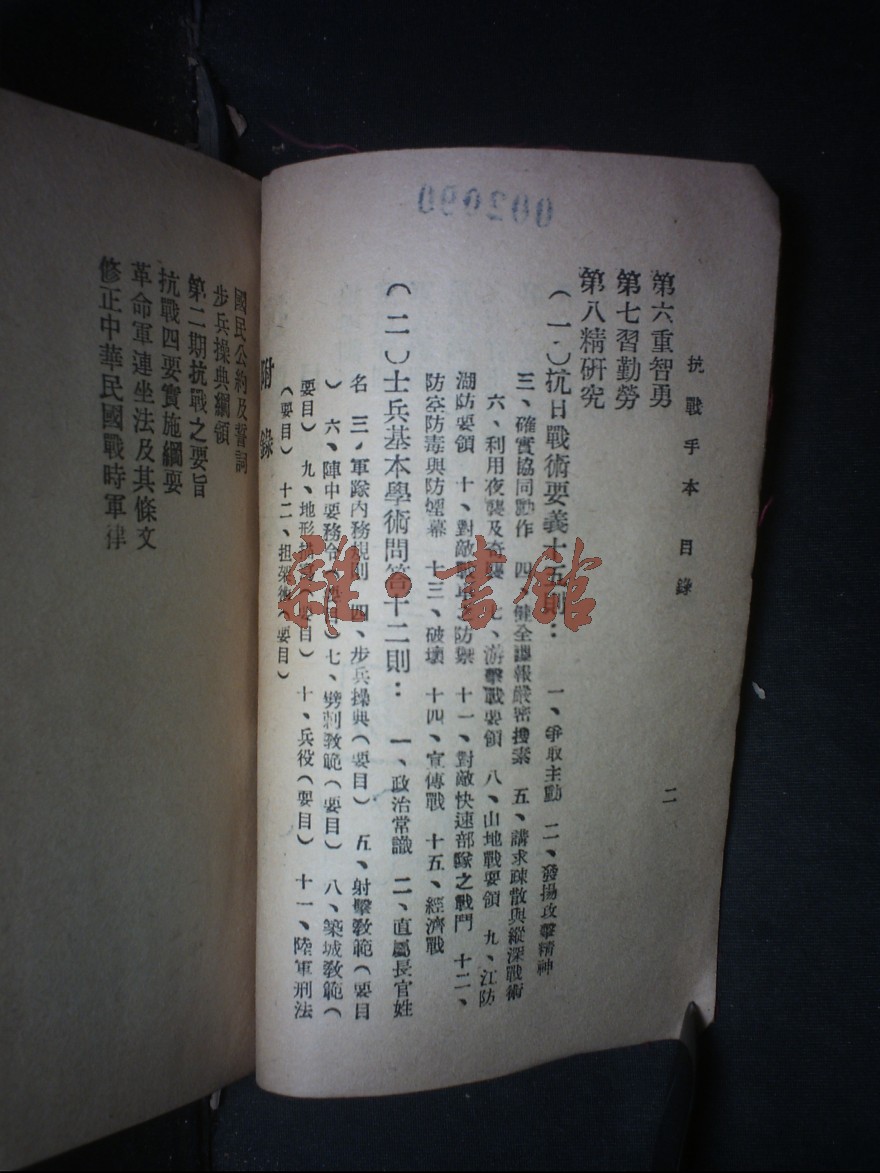 002090
抗戰手本 目錄 二
第六重智勇
第七習勤勞
第八精研究
(一)抗日戰術要義十五則: 一、爭取主動 二、發揚攻擊精神
三、確實協同動作 四、健全諜報嚴密搜索 五、講求疎散與縱深戰術
六、利用夜襲及奇襲 七、游擊戰要領 八、山地戰要領 九、江防
湖防要領 十、對敵戰車之防禦 十一、對敵快速部隊之戰鬥 十二、
防空防毒與防煙幕 十三、破壞 十四、宣傳戰 十五、經濟戰
(二)士兵基本學術問答十二則: 一、政治常識 二、直屬長官姓
名 三、軍隊內務規則 四、步兵操典(要目) 五、射擊教範(要目
) 六、陣中要務令(要目) 七、劈刺教範(要目) 八、築城教範(
要目) 九、地形 (要目) 十、兵役(要目) 十一、陸軍刑法
(要目) 十二、担架術(要目)
附錄
國民公約及誓詞
步兵操典綱領
第二期抗戰之要旨
抗戰四要實施綱要
革命軍連坐法及其條文
修正中華民國戰時軍律
雜·書館